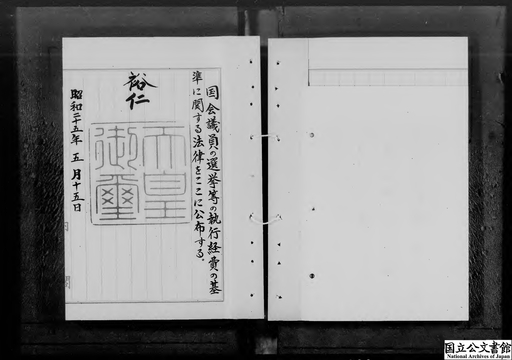 国会議員の選挙等の執行経費の基
準に関する法律をここに公布する。
裕仁
天皇
御璽
昭和二十五年五月十五日
国立公文書館
National Archives of Japan